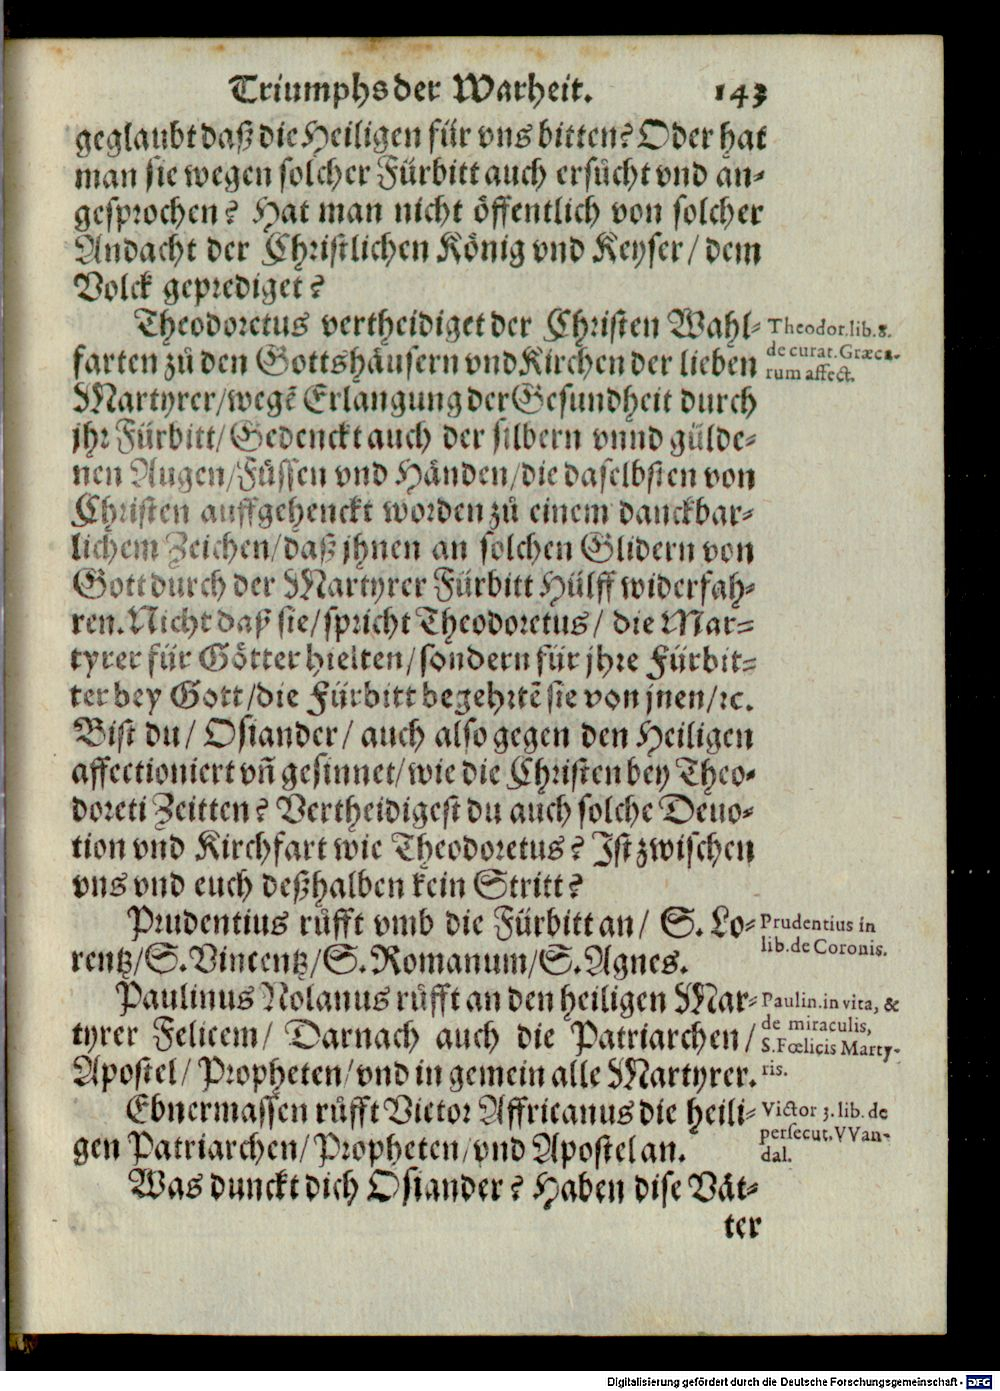 Triumphs der Warheit. 143
geglaubt daß die Heiligen für vns bitten? Oder hat
man sie wegen solcher Fürbitt auch ersůcht vnd an-
gesprochen? Hat man nicht öffentlich von solcher
Andacht der Christlichen König vnd Keyser/ dem
Volck geprediget?
Theodoretus vertheidiget der Christen Wahl-
farten zů den Gottshäusern vnd Kirchen der lieben
Martyrer/ wegē Erlangung der Gesundheit durch
jhr Fürbitt/ Gedenckt auch der silbern vnnd gülde-
nen Augen/ Füssen vnd Händen/ die daselbsten von
Christen auffgehenckt worden zů einem danckbar-
lichem Zeichen/ daß jhnen an solchen Glidern von
Gott durch der Martyrer Fürbitt Hülff widerfah-
ren. Nicht daß sie/ spricht Theodoretus/ die Mar-
tyrer für Götter hielten/ sondern für jhre Fürbit-
ter bey Gott/ die Fürbitt begehrtē sie von jnen/ ꝛc.
Bist du/ Osiander/ auch also gegen den Heiligen
affectioniert vñ gesinnet/ wie die Christen bey Theo-
doreti Zeitten? Vertheidigest du auch solche Deuo-
tion vnd Kirchfart wie Theodoretus? Ist zwischen
vns vnd euch deßhalben kein Stritt?
Theodor. lib. 8.
de curat. Græca-
rum affect.
Prudentius růfft vmb die Fürbitt an/ S. Lo-
rentz/ S. Vincentz/ S. Romanum/ S. Agnes.
Prudentius in
lib. de Coronis.
Paulinus Nolanus růfft an den heiligen Mar-
tyrer Felicem/ Darnach auch die Patriarchen/
Apostel/ Propheten/ vnd in gemein alle Martyrer.
Paulin. in vita, &
de miraculis,
S. Fœlicis Marty-
ris.
Ebnermassen růfft Victor Affricanus die heili-
gen Patriarchen/ Propheten/ vnd Apostel an.
Victor 3. lib. de
persecut. VVan-
dal.
Was dunckt dich Osiander? Haben dise Vät-
ter
Digitalisierung gefördert durch die Deutsche Forschungsgemeinschaft - DFG